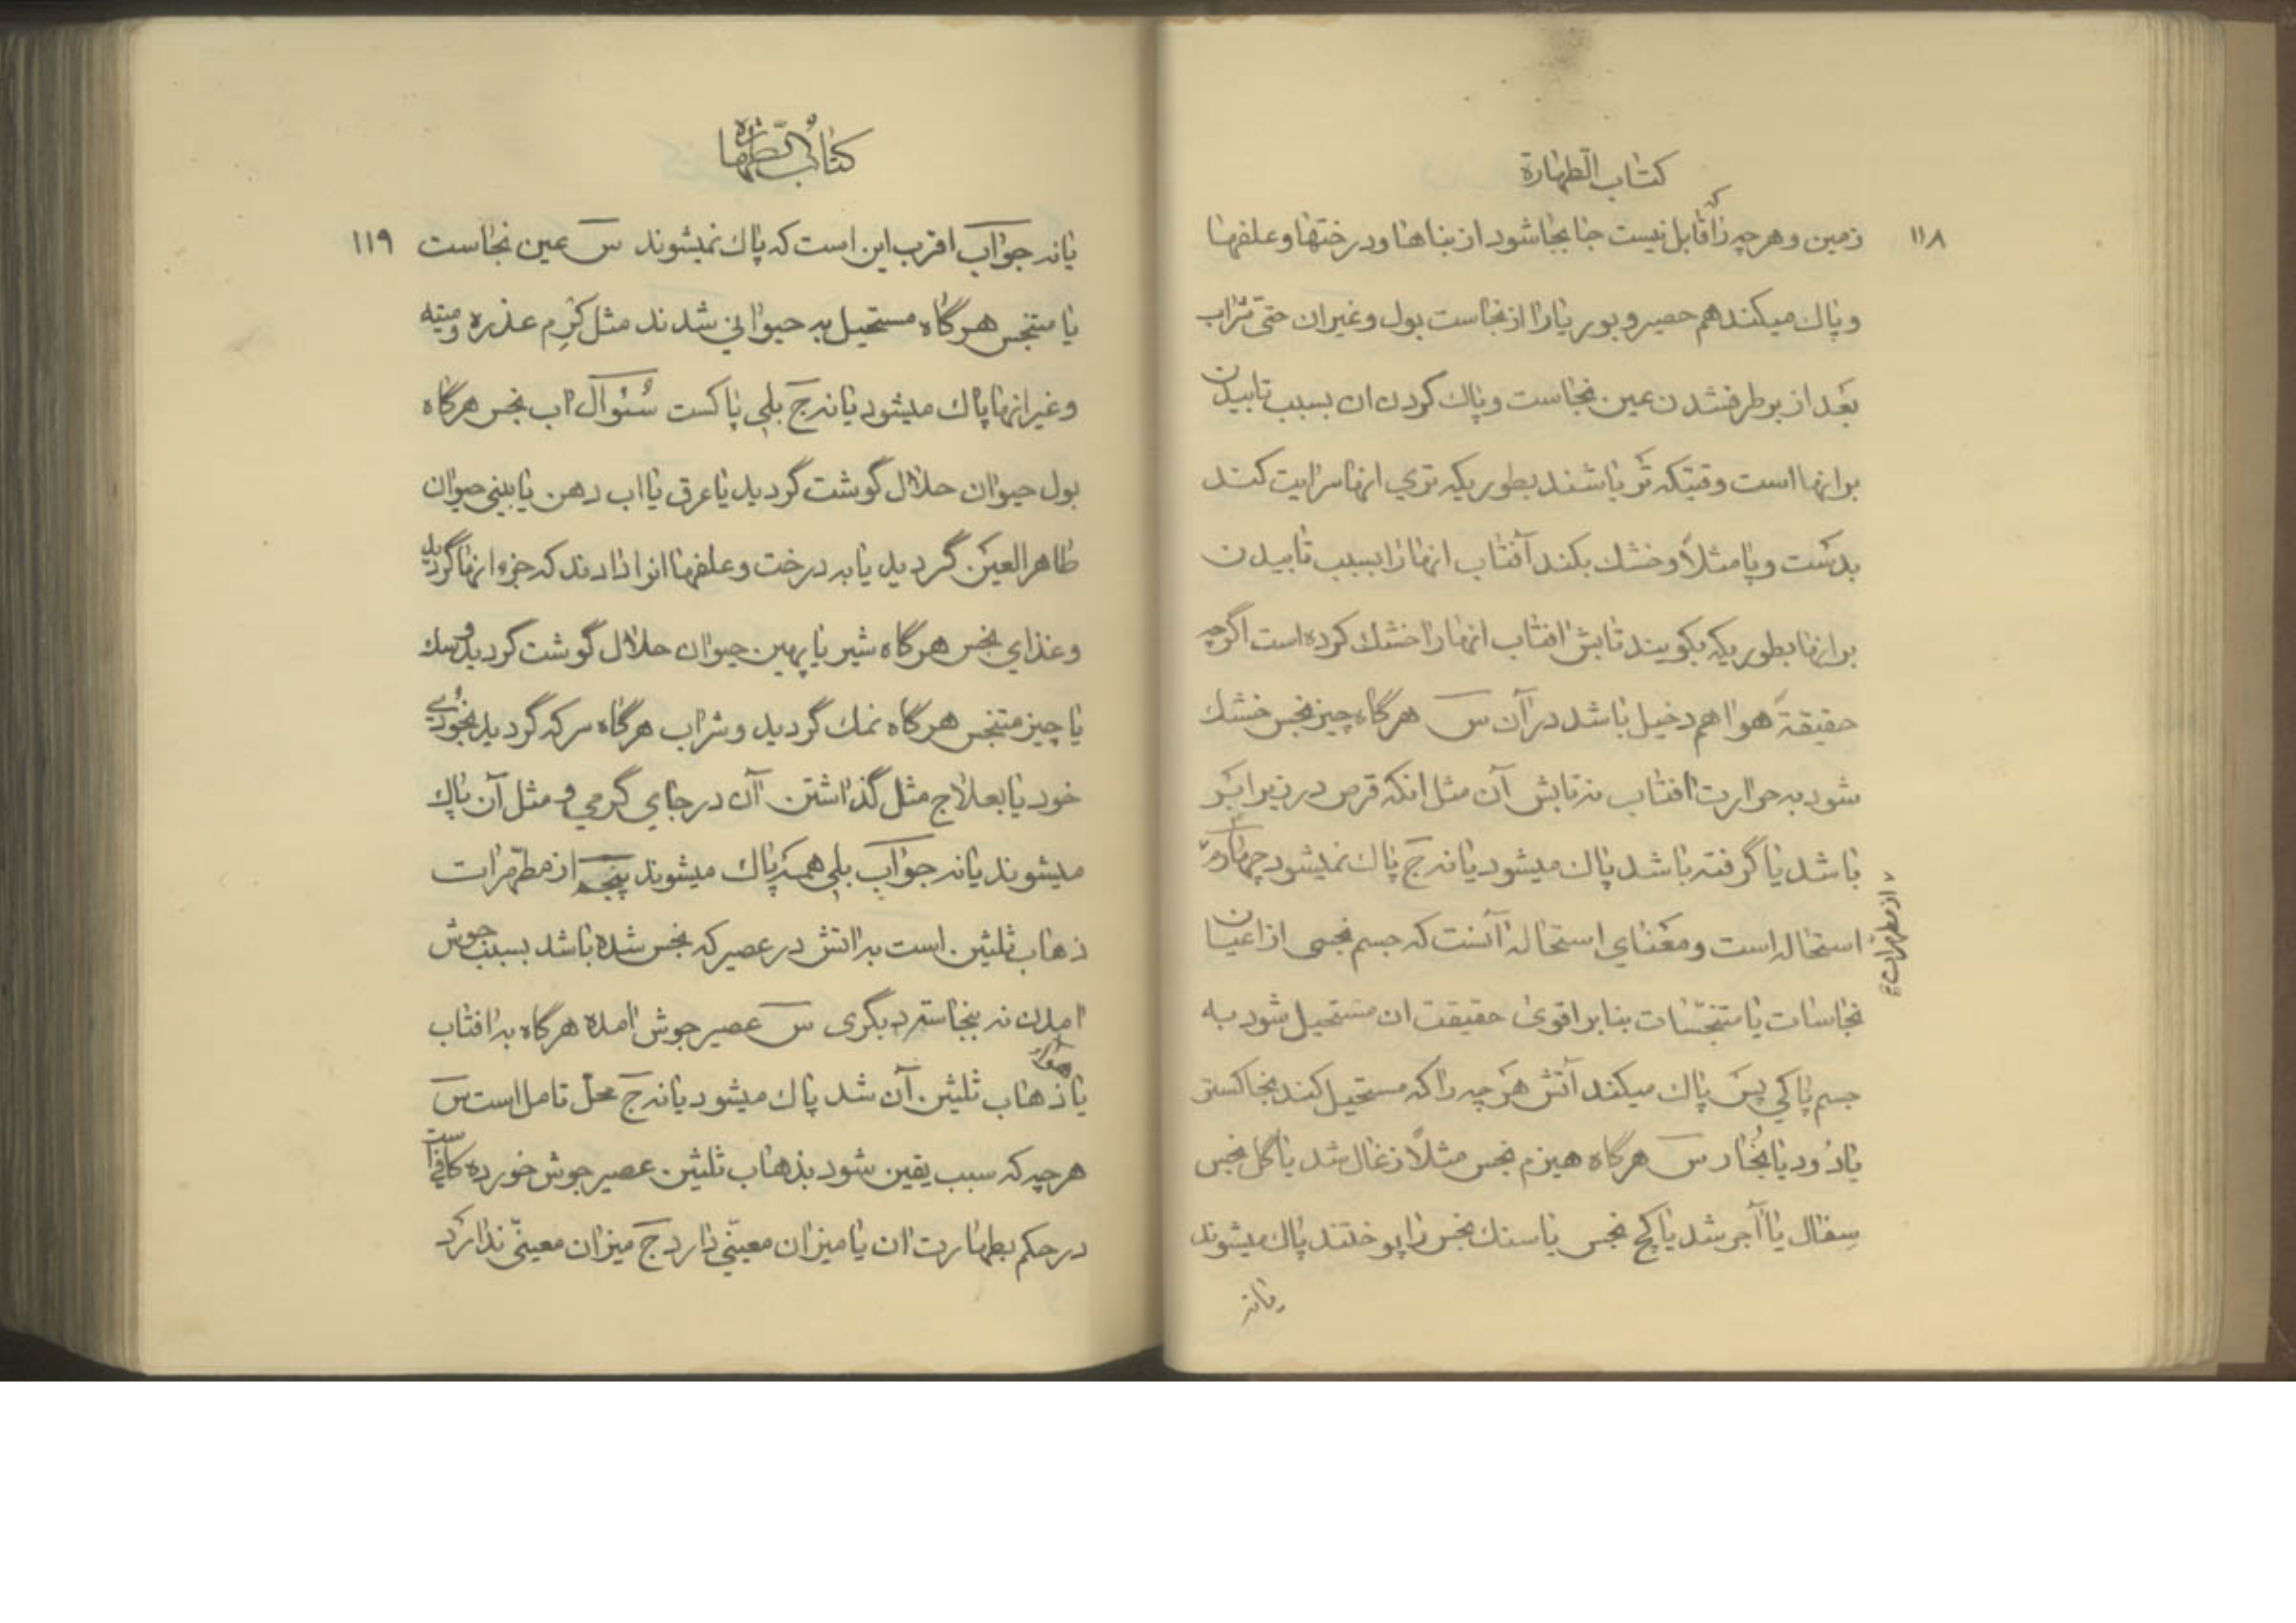 كتاب الطهارة
۱۱۸
زمين و هرچه را كه قابل نيست جا بجا شود از بناها و درختها و علفها
و پاك ميكند هم حصير و بوريا را از نجاست بول و غير ان حتى شراب
بعد از بر طرف شدن عين نجاست و پاك كردن ان بسبب تابيدن
بر انها است وقتيكه تر باشند بطوريكه تري انها سرايت كند
بدست و پا مثلاً و خشك بكند آفتاب انها را بسبب تابيدن
بر انها بطوريكه بكويند تابش افتاب انها را خشك كرده است اگرچه
حقيقةً هوا هم دخيل باشد در آن س هرگاه چيز نجس خشك
شود به حرارت افتاب نه تابش آن مثل انكه قرص در زير ابر
باشد يا گرفته باشد پاك ميشود يا نه ج پاك نميشود چهارم
از مطهرات
استحاله است و معناي استحاله آنست كه جسم نجسى از اعيان
نجاسات يا متنجّسات بنا بر اقوى حقيقت ان مستحيل شود به
جسم پاكي پس پاك ميكند آتش هر چه را كه مستحيل كند بخاكستر
يا دُود يا بُخار س هرگاه هيزم نجس مثلاً زغال شد يا گل نجس
سِفال يا آجر شد يا گچ نجس يا سنك نجس را پوختند پاك ميشوند
يا نه
كتاب الطّهارة
۱۱۹
يا نه جواب اقرب اين است كه پاك نميشوند س عين نجاست
يا متنجس هرگاه مستحيل به حيواني شدند مثل كرِم عذره و ميته
و غير انها پاك ميشود يا نه ج بلي پاكست سُئوال اب نجس هرگاه
بول حيوان حلال گوشت گرديد يا عرق يا اب دهن يا بيني حيوان
طاهر العين گرديد يا به درخت و علفها انرا دادند كه جزء انها گرديد
و غذاي نجس هرگاه شير يا پهين حيوان حلال گوشت گرديد و سك
يا چيز متنجس هرگاه نمك گرديد و شراب هرگاه سركه گرديد بخودي
خود يا بعلاج مثل گذاشتن آن در جاي گرمي و مثل آن پاك
ميشوند يا نه جواب بلي همه پاك ميشوند پنجم از مطهّرات
ذهاب ثلثين است به اتش در عصير كه نجس شده باشد بسبب جوش
امدن نه بنجاست ديگرى س عصير جوش امده هرگاه به افتاب
يا هوا ذهاب ثلثين آن شد پاك ميشود يا نه ج محلّ تامل است س
هرچه كه سبب يقين شود بذهاب ثلثين عصير جوش خورده كافي است
در حكم بطهارت ان يا ميزان معيّني دارد ج ميزان معينّى ندارد